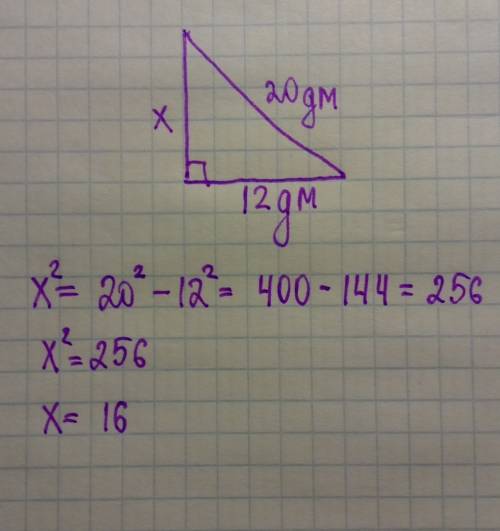 20 дм
x
12 дм
x² = 20² - 12² = 400 - 144 = 256
x² = 256
x = 16